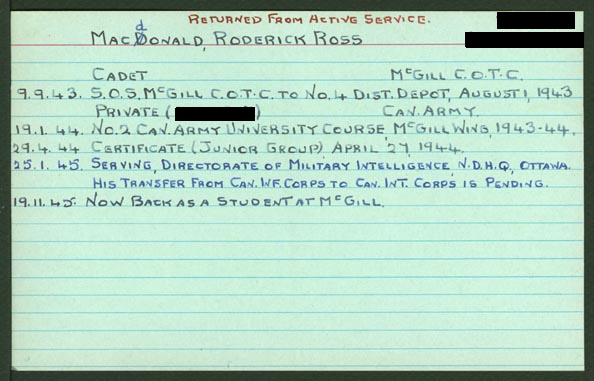 RETURNED FROM ACTIVE SERVICE.
MACdONALD, RODERICK ROSS
CADET McGILL C.O.T.C.
9.9.43. S.O.S. McGILL C.O.T.C. TO NO.4 DIST. DEPOT, AUGUST 1, 1943
PRIVATE ( ) CAN. ARMY.
19.1.44. NO.2 CAN. ARMY UNIVERSITY COURSE, McGILL WING, 1943-44.
29.4.44 CERTIFICATE (JUNIOR GROUP) APRIL 27, 1944.
25.1.45. SERVING, DIRECTORATE OF MILITARY INTELLIGENCE, N.D.H.Q., OTTAWA.
HIS TRANSFER FROM CAN. INF. CORPS TO CAN. INT. CORPS IS PENDING.
19.11.45. NOW BACK AS A STUDENT AT McGILL.